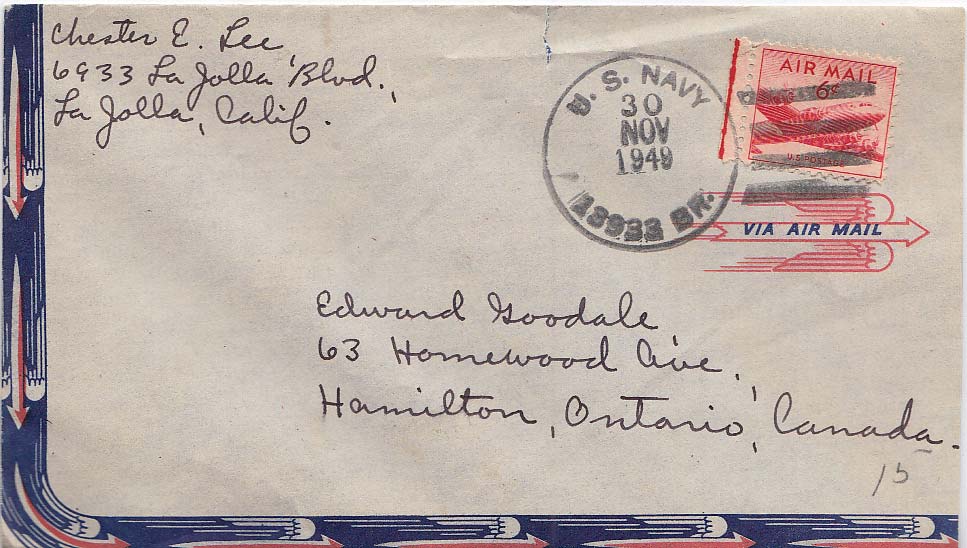 Chester E. Lee
6933 La Jolla Blvd.,
La Jolla, Calif.
U. S. NAVY
30
NOV
1949
BR.
AIR MAIL
6¢
U.S. POSTAGE
VIA AIR MAIL
Edward Goodale
63 Homewood Ave.,
Hamilton, Ontario, Canada.
15